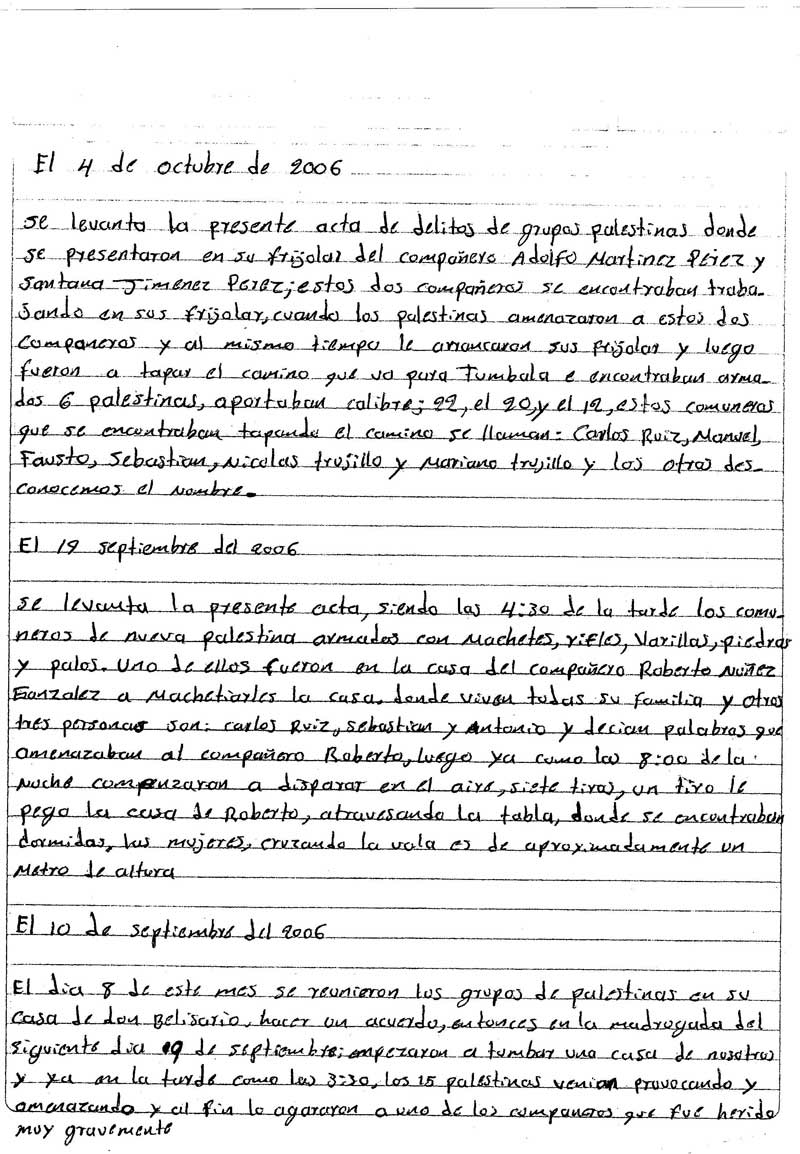 El 4 de octubre de 2006
se levanta la presente acta de delitos de grupos palestinas donde
se presentaron en su frijolar del compañero Adolfo Martinez Pérez y
Santana Jimenez Perez; estos dos compañeros se encontraban traba-
jando en sus frijolar, cuando los palestinas amenazaron a estos dos
companeros y al mismo tiempo le arrancaron sus frijolar y luego
fueron a tapar el camino que va para Tumbala e encontraban arma-
dos 6 palestinas, aportaban calibre; 22, el 20, y el 12, estos comuneros
que se encontraban tapando el camino se llaman: Carlos Ruiz, Manuel,
Fausto, Sebastian, Nicolas trujillo y Mariano trujillo y los otros des-
conocemos el nombre.
El 19 septiembre del 2006
se levanta la presente acta, siendo las 4:30 de la tarde los comu-
neros de nueva palestina armados con Machetes, rifles, Varillas, piedras
y palos. Uno de ellos fueron en la casa del compañero Roberto Nuñez
Gonzalez a Machetiarles la casa, donde viven todas su familia y otros
tres personas son: carlos Ruiz, sebastian y Antonio y decian palabras que
amenazaban al compañero Roberto, luego ya como las 8:00 de la
Noche compenzaron a disparar en el aire, siete tiros, un tiro le
pego la casa de Roberto, atravesando la tabla, donde se encontraban
dormidas, las mujeres, cruzando la vala es de aproximadamente un
Metro de altura
El 10 de septiembre del 2006
El dia 8 de este mes se reunieron los grupos de palestinas en su
casa de don Belisario, hacer un acuerdo, entonces en la madrogada del
siguiente dia 9 de septiembre; empezaron a tumbar una casa de nosotros
y ya en la tarde como las 3:30, los 15 palestinas venian provocando y
amenazando y al fin lo agararon a uno de los companeros que fue herido
muy gravemente